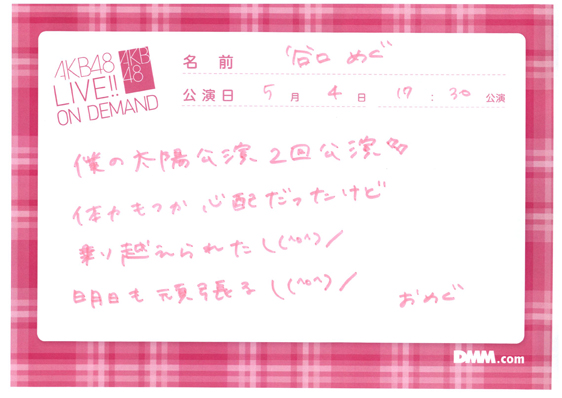 AKB48
LIVE!!
ON DEMAND
AKB
48
名前 谷口 めぐ
公演日 5月 4日 17:30 公演
僕の太陽公演 2回公演
体力もつか 心配だったけど
乗り越えられた \(^o^)/
明日も頑張る \(^o^)/
おめぐ
DMM.com